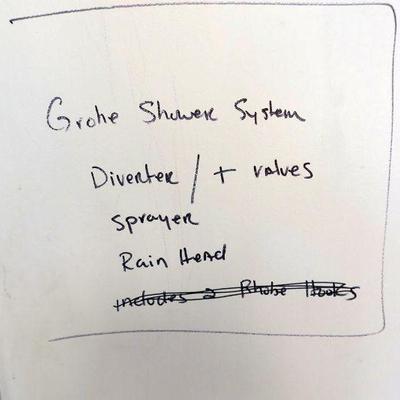 Grohe Shower System
Diverter / + valves
Sprayer
Rain Head
includes 2 Rhobe Hooks